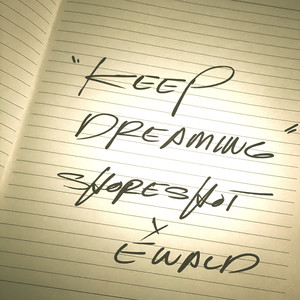 "KEEP
DREAMING"
SHORESHOT
X
EWALD